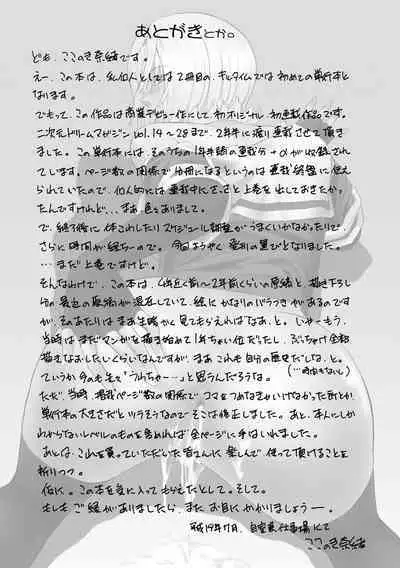 あとがきとか。
ども、ここのき奈緒です。
えー、この本は、私個人としては2冊目の、キルタイムでは初めての単行本と
なります。
でもって、この作品は商業デビュー作にして初オリジナル、初連載作品です。
二次元ドリームマガジン vol.14〜28まで、2年半に渡り連載させて頂き
ました。この単行本には、そのうちの1年半程の連載分+αが収録され
ています。ページ数の関係で分冊になるというのは連載終盤に伝え
られていたので、個人的には連載中にさっさと上巻を出しておきたかっ
たんですけれど…、まあ、色々ありまして。
で、終了後に
スケジュール調整がうまくいかなかったりで、
さらに時間が経ちーので。今回ようやく発刊の運びとなりました。
…まだ上巻ですけど。
そんなわけで、この本は、4年近く前〜2年前くらいの原稿と、描き下ろし
分の最近の原稿が混在していて、絵にかなりのバラつきがあるのです
が、そのあたりはまあ生暖かく見てもらえればなあ、と。いやーもう、
当時はまだマンガを描き始めて1年ちょい位でしたし、ぶっちゃけ全部
描きなおしたいくらいなんですが、まあこれも自分の歴史だしな、と。
ていうか今のも先々「うわちゃー…」と思うんだろうな。
ただ、当時、掲載ページ数の関係で、コマをつめなきゃいけなかった所とか
単行本の大きさだとツラそうなのでそこは修正しました。あと、本人にしか
わからないレベルのものを含めれば全ページに手はいれました。
あとは、これを買っていただいた皆さんに楽しんで使って頂けることを
祈りつつ。
仮に。この本を気に入ってもらえたとして。そして。
もしもご縁がありましたら、またお目にかかりましょうー。
平成19年7月、自室兼仕事場にて
ここのき奈緒